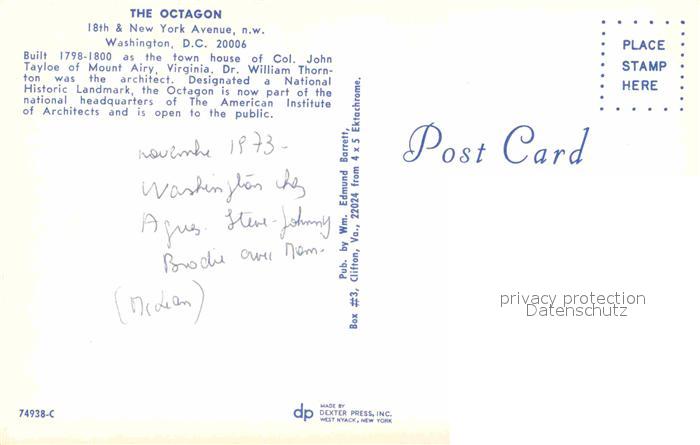 THE OCTAGON
18th & New York Avenue, n.w.
Washington, D.C. 20006
Built 1798-1800 as the town house of Col. John
Tayloe of Mount Airy, Virginia. Dr. William Thorn-
ton was the architect. Designated a National
Historic Landmark, the Octagon is now part of the
national headquarters of The American Institute
of Architects and is open to the public.
PLACE
STAMP
HERE
Post Card
novembre 1973 -
Washington chez
Agnes. Steve - Johnny
Brodie avec Mam.
(McLean)
Pub. by Wm. Edmund Barrett,
Box #3, Clifton, Va., 22024 from 4 x 5 Ektachrome.
privacy protection
Datenschutz
74938-C
dp MADE BY
DEXTER PRESS, INC.
WEST NYACK, NEW YORK